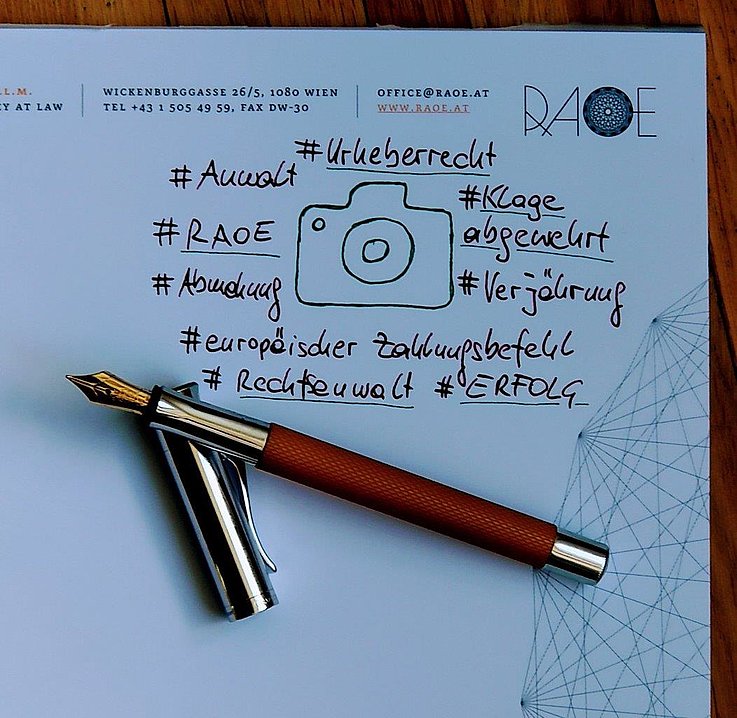 LL.M.
EY AT LAW
WICKENBURGGASSE 26/5, 1080 WIEN
TEL +43 1 505 49 59, FAX DW-30
OFFICE@RAOE.AT
WWW.RAOE.AT
RAOE
#Urheberrecht
#Anwalt
#Klage
abgewehrt
#RAOE
#Abmahnung
#Verjährung
#europäischer Zahlungsbefehl
#Rechtsanwalt #ERFOLG